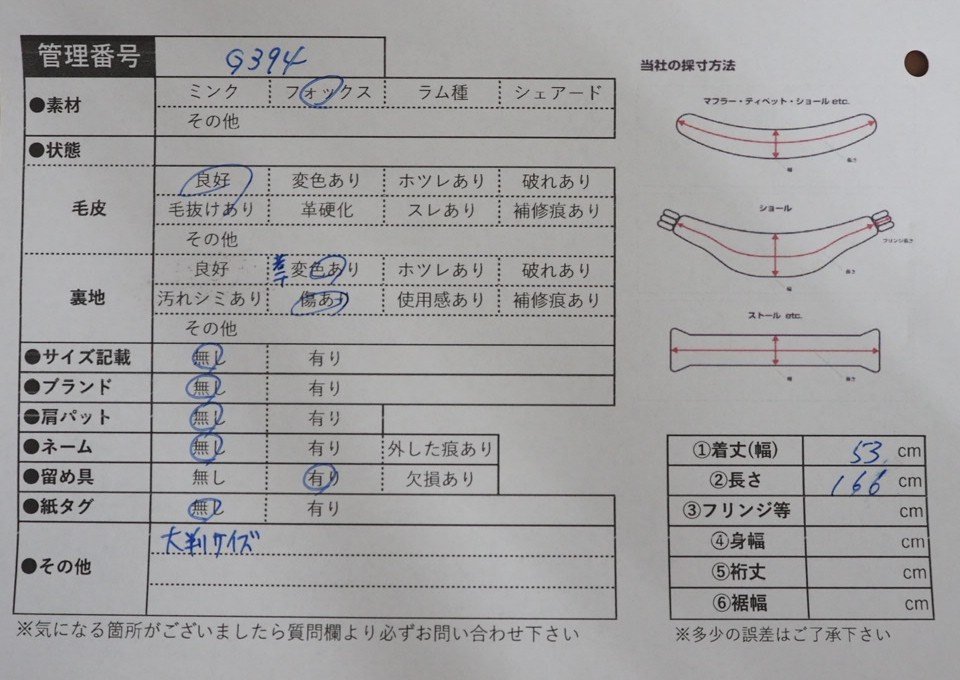 管理番号 G394
●素材 ミンク フォックス ラム種 シェアード
その他
●状態
毛皮 良好 変色あり ホツレあり 破れあり
毛抜けあり 革硬化 スレあり 補修痕あり
その他
裏地 良好 若干 変色あり ホツレあり 破れあり
汚れシミあり 傷あり 使用感あり 補修痕あり
その他
●サイズ記載 無し 有り
●ブランド 無し 有り
●肩パット 無し 有り
●ネーム 無し 有り 外した痕あり
●留め具 無し 有り 欠損あり
●紙タグ 無し 有り
●その他 大判サイズ
※気になる箇所がございましたら質問欄より必ずお問い合わせ下さい
当社の採寸方法
マフラー・ティペット・ショール etc.
長さ
幅
ショール
フリンジ長さ
長さ
幅
ストール etc.
幅
長さ
①着丈(幅) 53 cm
②長さ 166 cm
③フリンジ等 cm
④身幅 cm
⑤裄丈 cm
⑥裾幅 cm
※多少の誤差はご了承下さい